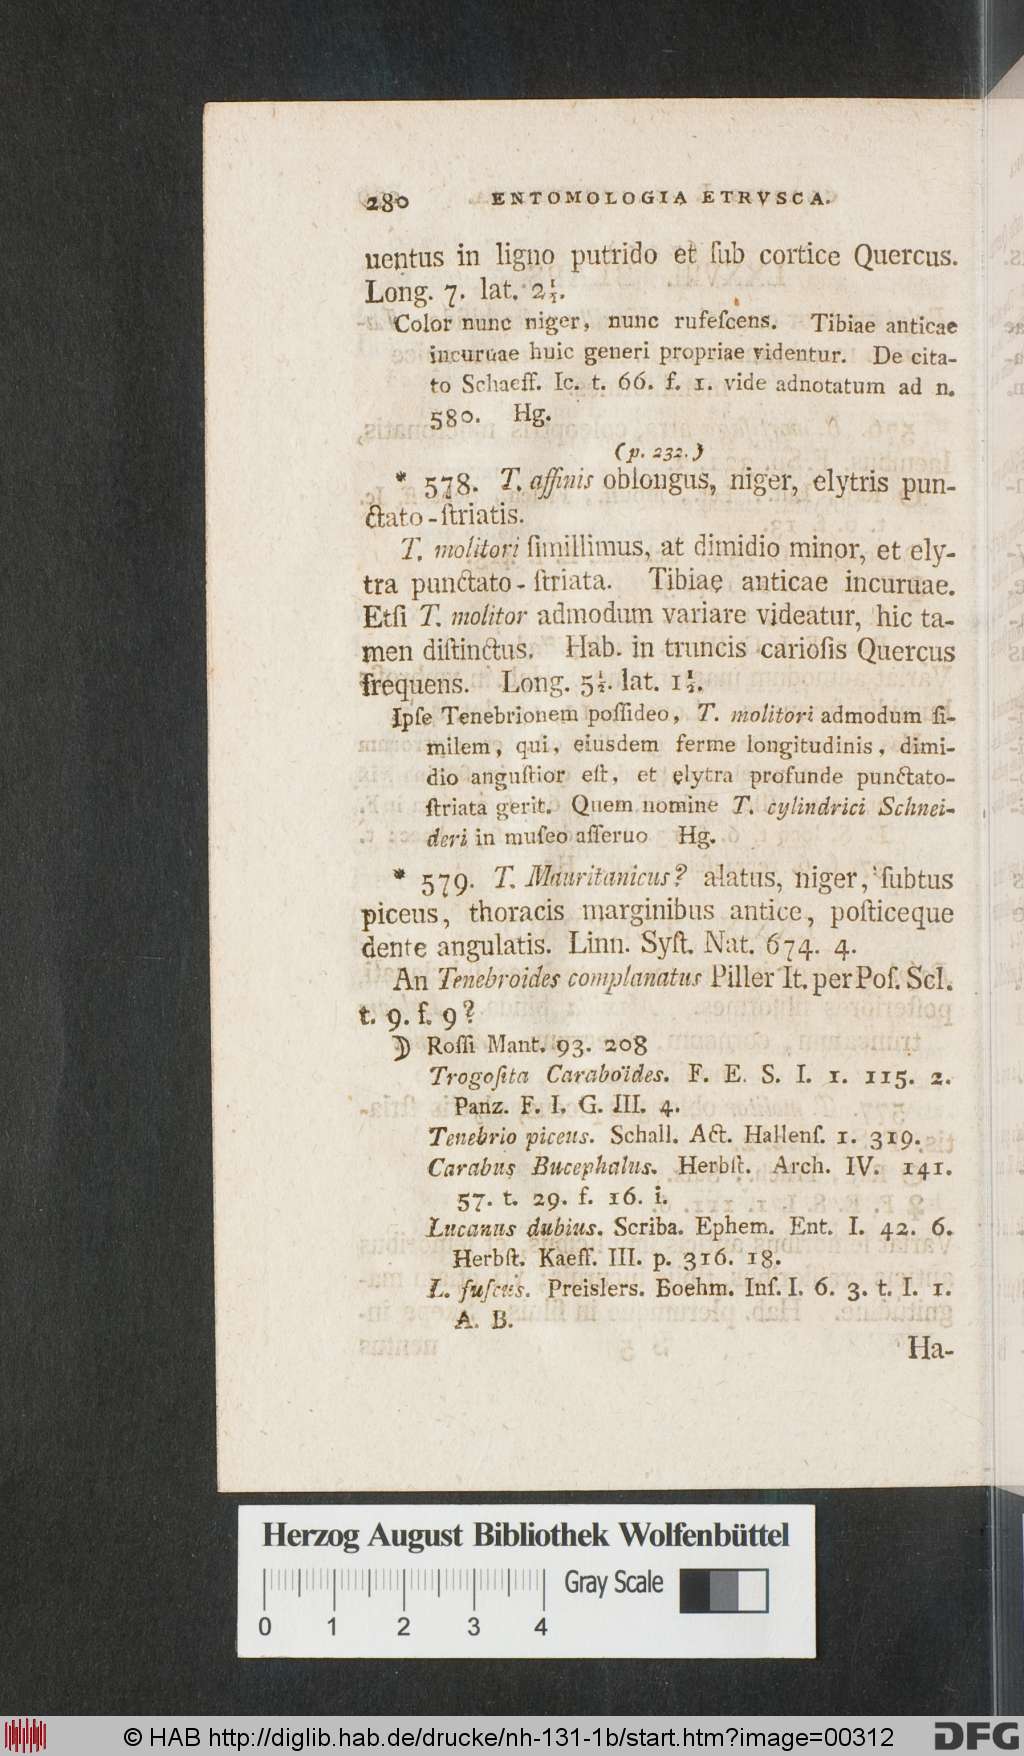 280 ENTOMOLOGIA ETRVSCA.
uentus in ligno putrido et ſub cortice Quercus.
Long. 7. lat. 2½.
Color nunc niger, nunc rufeſcens. Tibiae anticae
incuruae huic generi propriae videntur. De cita-
to Schaeff. Ic. t. 66. f. 1. vide adnotatum ad n.
580. Hg.
(p. 232.)
* 578. T. affinis oblongus, niger, elytris pun-
ctato-ſtriatis.
T. molitori ſimillimus, at dimidio minor, et ely-
tra punctato-ſtriata. Tibiae anticae incuruae.
Etſi T. molitor admodum variare videatur, hic ta-
men diſtinctus. Hab. in truncis carioſis Quercus
frequens. Long. 5½. lat. 1½.
Ipſe Tenebrionem poſſideo, T. molitori admodum ſi-
milem, qui, eiusdem ferme longitudinis, dimi-
dio anguſtior eſt, et elytra profunde punctato-
ſtriata gerit. Quem nomine T. cylindrici Schnei-
deri in muſeo aſſeruo Hg.
* 579. T. Mauritanicus? alatus, niger, ſubtus
piceus, thoracis marginibus antice, poſticeque
dente angulatis. Linn. Syſt. Nat. 674. 4.
An Tenebroides complanatus Piller It. per Poſ. Scl.
t. 9. f. 9?
D Roſſi Mant. 93. 208
Trogoſita Caraboïdes. F. E. S. I. 1. 115. 2.
Panz. F. I. G. III. 4.
Tenebrio piceus. Schall. Act. Hallenſ. 1. 319.
Carabus Bucephalus. Herbſt. Arch. IV. 141.
57. t. 29. f. 16. i.
Lucanus dubius. Scriba. Ephem. Ent. I. 42. 6.
Herbſt. Kaeff. III. p. 316. 18.
L. fuſcus. Preislers. Boehm. Inſ. I. 6. 3. t. I. 1.
A. B.
Ha-
Herzog August Bibliothek Wolfenbüttel
Gray Scale
0 1 2 3 4
© HAB http://diglib.hab.de/drucke/nh-131-1b/start.htm?image=00312
DFG